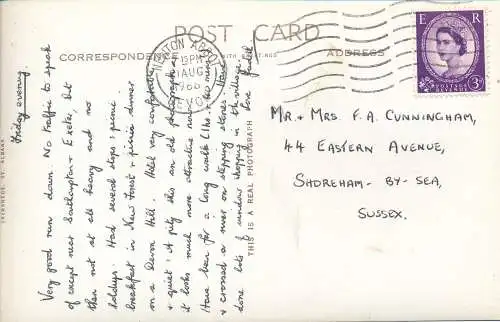 POST CARD
CORRESPONDENCE
ADDRESS
NEWTON ABBOT
PM
AUG
1966
DEVON
E R
POSTAGE
REVENUE
3D
Friday evening.
Very good run down. No traffic to speak
of except near Southampton & Exeter, but
then not at all heavy and no
holdups. Had several stops: picnic
breakfast in New Forest & picnic dinner
on a Devon Hill. Hotel very comfortable
& quiet. A pity this an old photograph as
it looks much more attractive now.
Have been for a long walk
& crossed a river on stepping stones. Have
done lots of window shopping in the village.
love
MR. & MRS. F.A. CUNNINGHAM,
44 EASTERN AVENUE,
SHOREHAM-BY-SEA,
SUSSEX.
THIS IS A REAL PHOTOGRAPH
ST. ALBANS